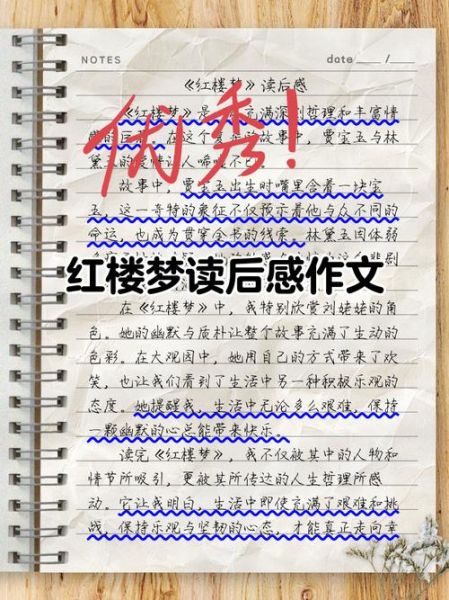 NOTES date ____ /____
《红楼梦》读后感
优秀!
《红楼梦》是 充满深刻哲理和丰富情
感的巨作。在这个复杂的故事中，贾宝玉与林
黛玉的爱情让人唏嘘不已
故事中，贾宝玉出生时嘴里含着一块宝
玉，这一奇特的象征不仅预示着他与众不同的
命运，也成为贯穿全书的线索。林黛玉因体弱
红楼梦读后感作文
在《红楼梦》中，我特别欣赏刘姥姥的角
色。她的幽默与质朴让整个故事充满了生动的
色彩。在大观园中，她用自己的方式带来了欢
笑，也让我们看到了生活中另一种积极乐观的
态度。她提醒我，生活中无论多么艰难，保持
一颗幽默的心总能带来快乐。
读完《红楼梦》，我不仅被其中的人物和
情节所吸引，更被其所传达的人生哲理所感
动。它让我明白，生活中即使充满了艰难和挑
战，保持乐观与坚韧的心态，才能真正走向幸